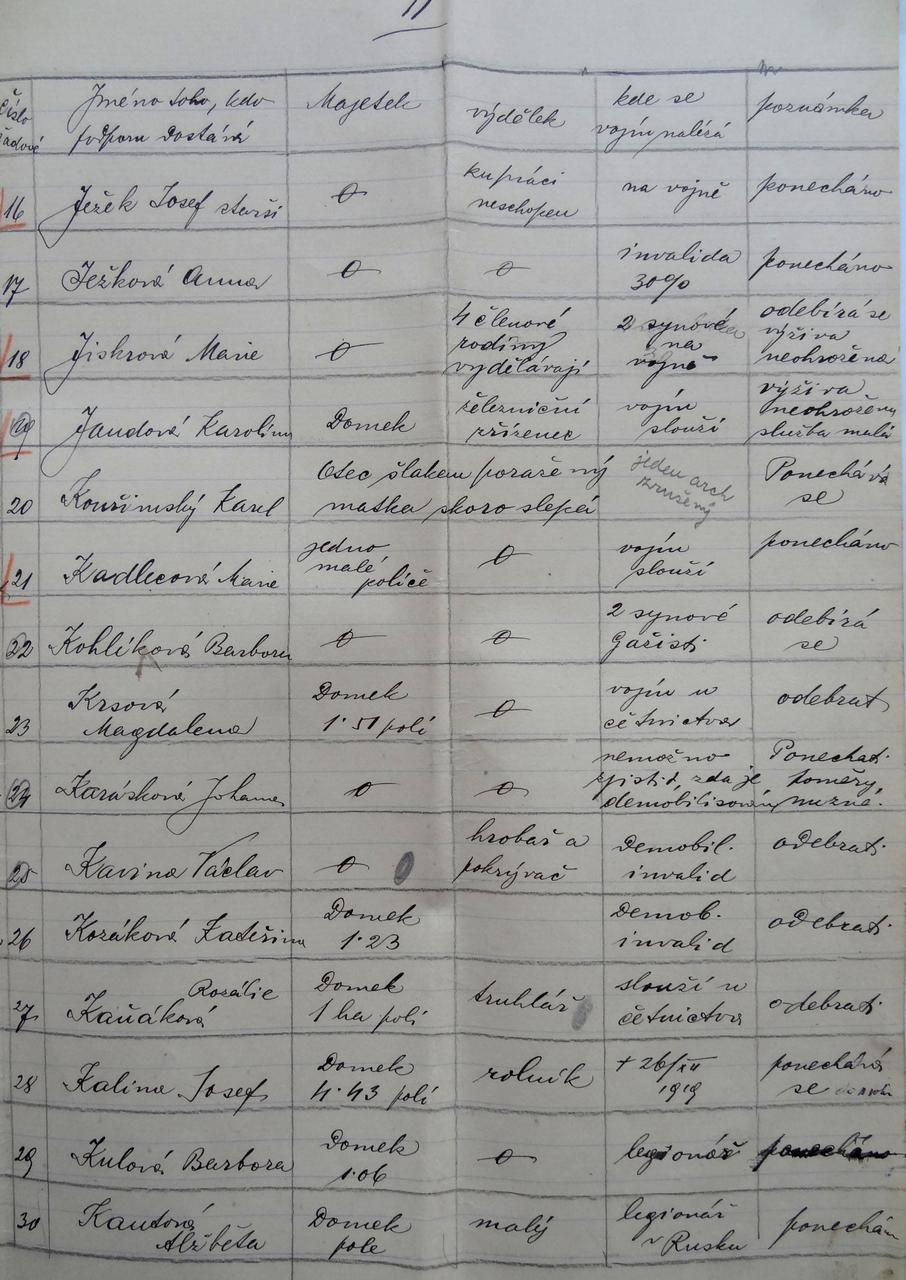 11
číslo řadové | Jméno toho, kdo podporu dostává | Majetek | výdělek | kde se vojín nalézá | poznámka
16 | Ježek Josef starší | 0 | ku práci neschopen | na vojně | ponecháno
17 | Ježková Anna | 0 | 0 | invalida 30% | ponecháno
18 | Jiskrová Marie | 0 | 4 členové rodiny vydělávají | 2 synové na vojně | odebírá se výživa neohrožena
19 | Jandová Karolina | Domek | železniční zřízenec | vojín slouží | výživa neohrožena služba malá
20 | Kouřimský Karel | Otec šlakem poražený matka skoro slepá | jeden arch zrušený | Ponechává se
21 | Kadlecová Marie | jedno malé políče | 0 | vojín slouží | ponecháno
22 | Kohlíková Barbora | 0 | 0 | 2 synové gažisti | odebírá se
23 | Krsová Magdalena | Domek 1·51 polí | 0 | vojín u četnictva | odebrat
24 | Karásková Johana | 0 | 0 | nemožno zjistit, zda je demobilisován | Ponechati poměry nuzné.
25 | Kavina Václav | 0 | hrobař a pokrývač | Demobil. invalid | odebrati
26 | Kozáková Kateřina | Domek 1·23 | Demob. invalid | odebrati
27 | Kaňáková Rozálie | Domek 1 ha polí | truhlář | slouží u četnictva | odebrati
28 | Kalina Josef | Domek 4·43 polí | rolník | + 26/XII 1919 | ponechává se
29 | Kulová Barbora | Domek 1·06 | 0 | legionář | ponecháno
30 | Kautová Alžběta | Domek pole | malý | legionář v Rusku | ponechán